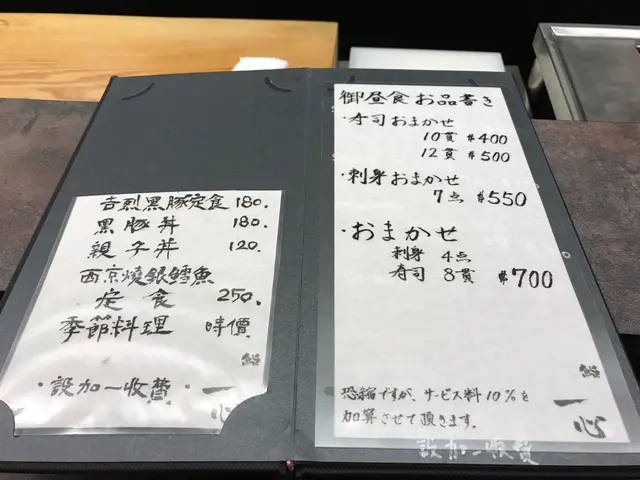 吉烈黒豚定食 180.
黒豚丼 180.
親子丼 120.
西京燒銀鱈魚
定食 250.
季節料理 時價
・設加一收費・
鮨
一心
御昼食お品書き
・寿司おまかせ
10貫 $400
12貫 $500
・刺身おまかせ
7点 $550
・おまかせ
刺身 4点
寿司 8貫 $700
鮨
一心
恐縮ですが、サービス料10%を
加算させて頂きます。
設加一收費